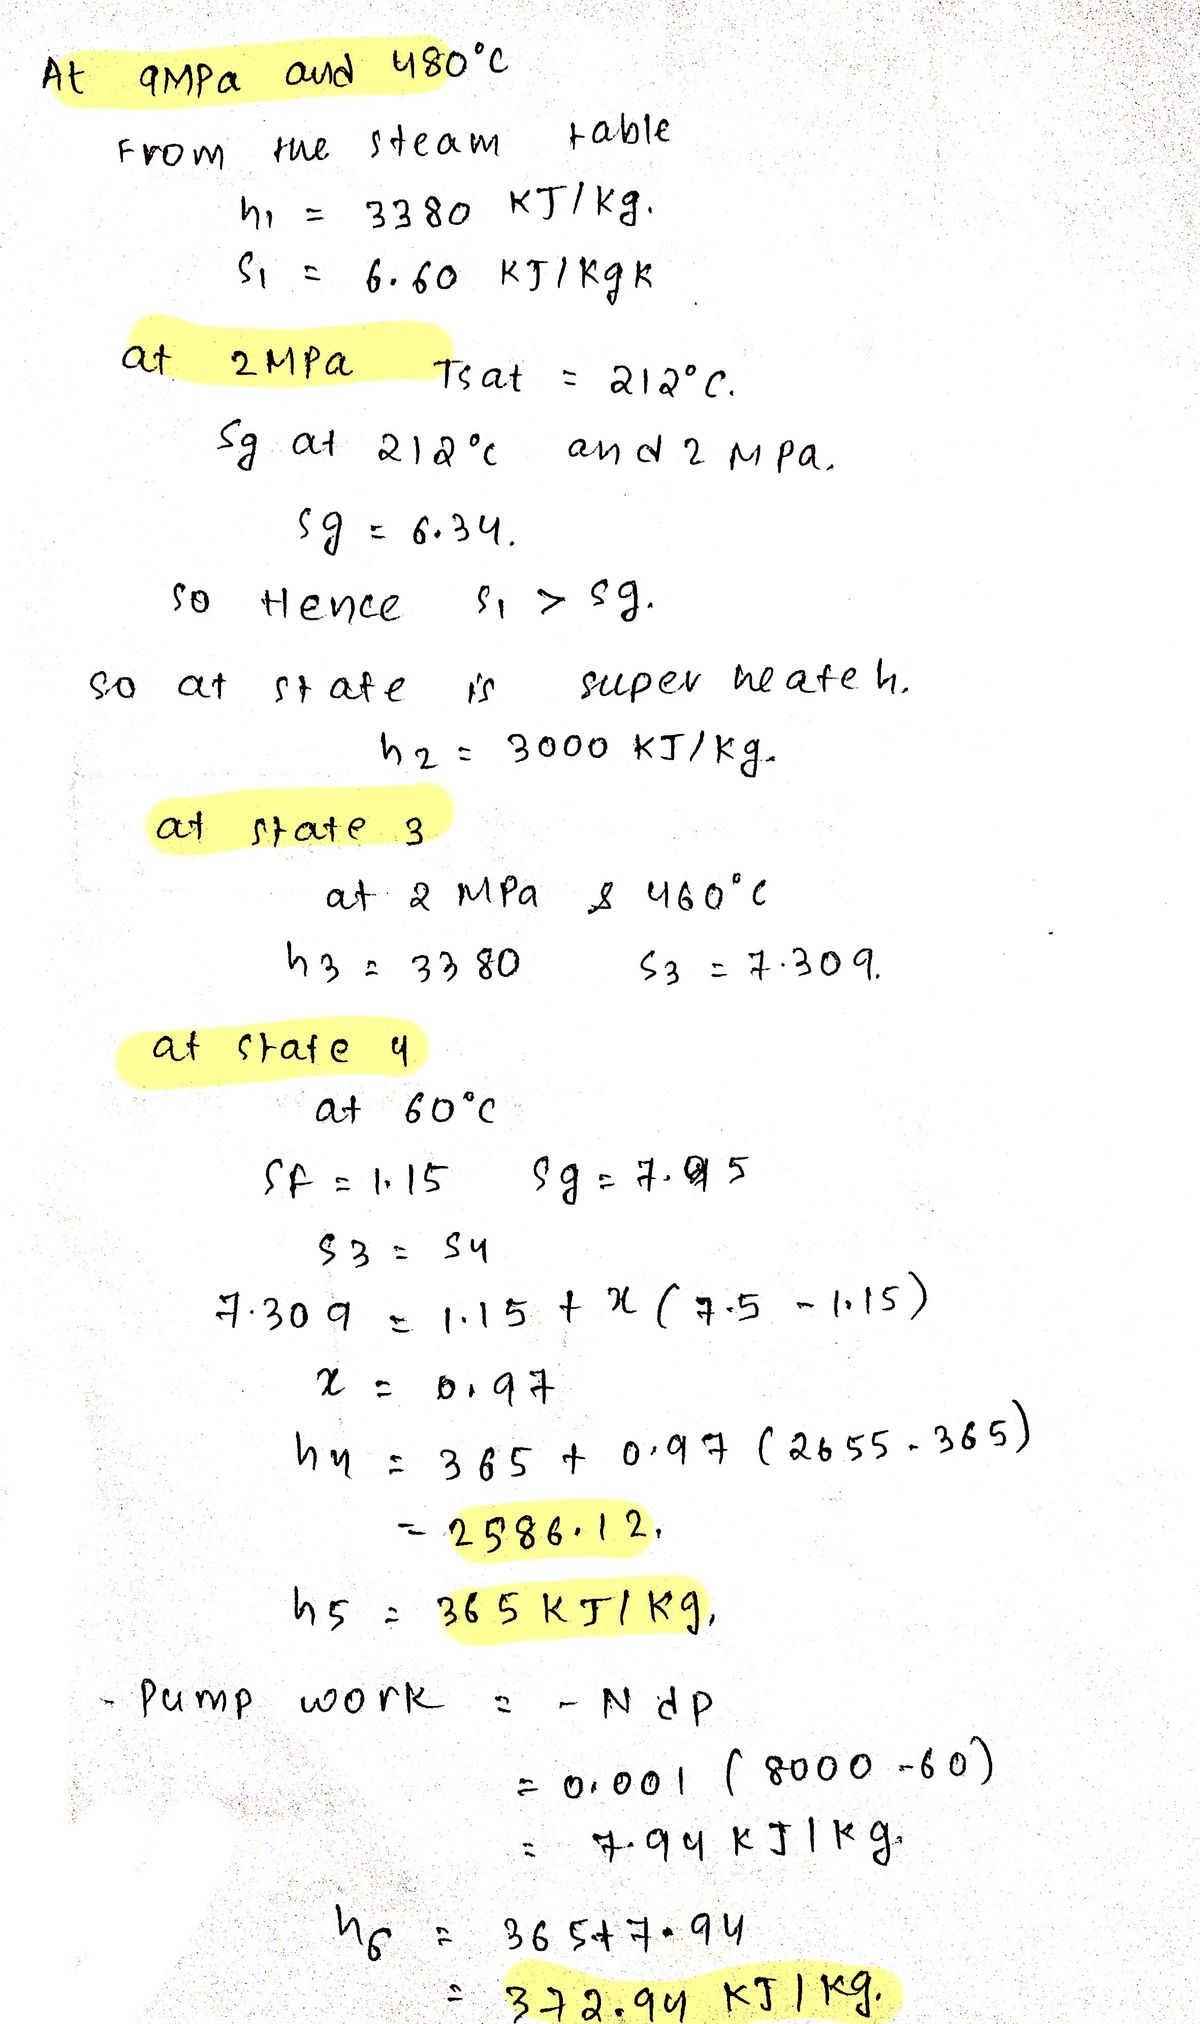 At 9MPa and 480°C
From the steam table
h1 = 3380 KJ/Kg.
S1 = 6.60 KJ/KgK
at 2MPa Tsat = 212°C.
Sg at 212°C and 2 MPa.
Sg = 6.34.
so Hence S1 > Sg.
so at state is super heateh.
h2 = 3000 KJ/Kg.
at state 3
at 2 MPa & 460°C
h3 = 3380 S3 = 7.309.
at state 4
at 60°C
Sf = 1.15 Sg = 7.95
S3 = S4
7.309 = 1.15 + x (7.5 - 1.15)
x = 0.97
h4 = 365 + 0.97 (2655 - 365)
= 2586.12.
h5 = 365 KJ/Kg,
- Pump work = - N dp
= 0.001 (8000 - 60)
= 7.94 KJ/Kg.
h6 = 365+7.94
= 372.94 KJ/Kg.